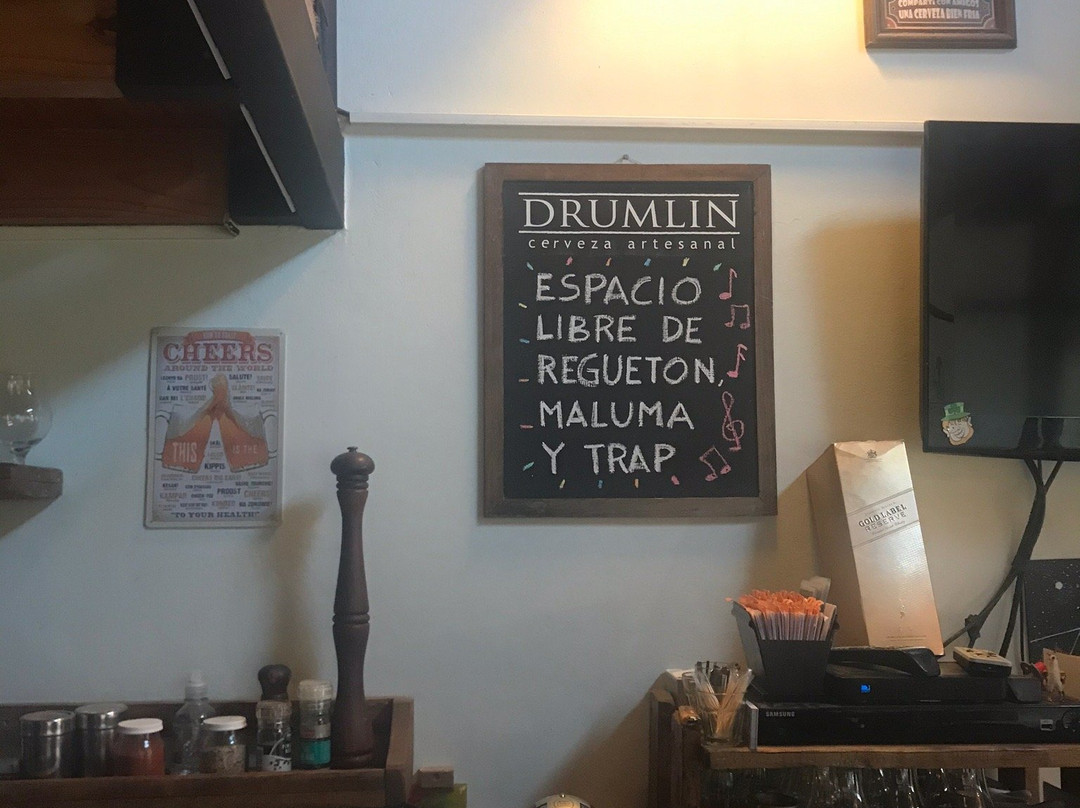 COMPARTI CON AMIGOS
UNA CERVEZA BIEN FRIA
DRUMLIN
cerveza artesanal
ESPACIO
LIBRE DE
REGUETON,
MALUMA
Y TRAP
CHEERS
AROUND THE WORLD
PROOST
SALUTE!
À VOTRE SANTÉ
THIS
IS THE
KIPPIS
PROOLT
"TO YOUR HEALTH"
GOLD LABEL
RESERVE
SAMSUNG